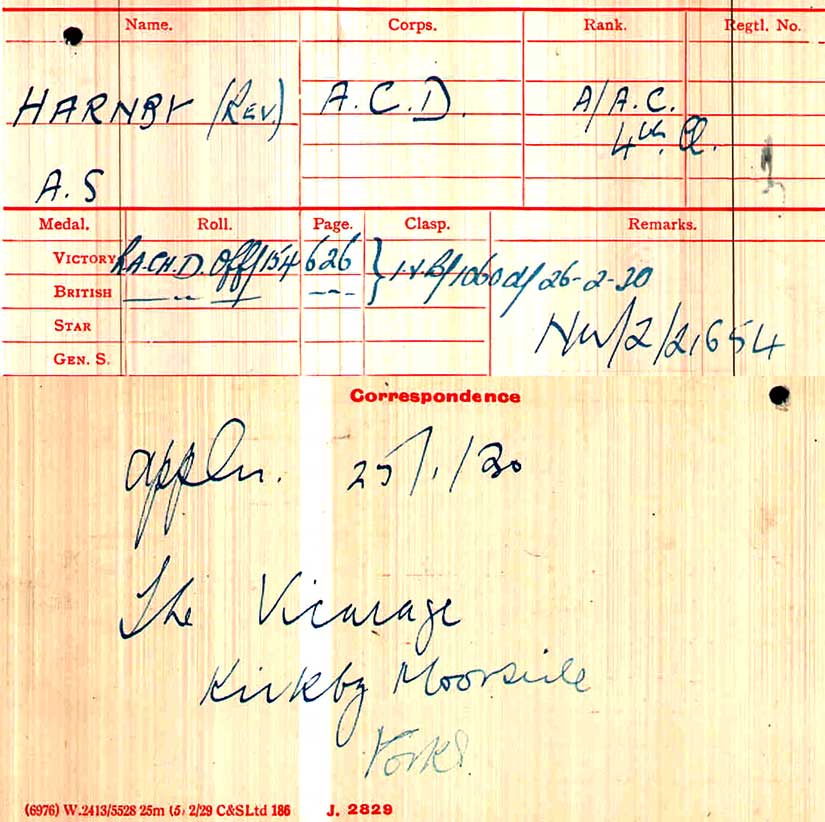 Name. Corps. Rank. Regtl. No.
HARNBY (REV.) A.C.D. A/A.C.
4th Cl.
A.S
Medal. Roll. Page. Clasp. Remarks.
VICTORY R.A.CH.D. Off/154 626 } I.V.B/1060 d/ 26-2-30
BRITISH — „ — — „ —
STAR NW/2/21654
GEN. S.
Correspondence
appln. 25/1/30
The Vicarage
Kirkby Moorside
Yorks.
(6976) W.2413/5528 25m (5) 2/29 C&SLtd 186 J. 2829